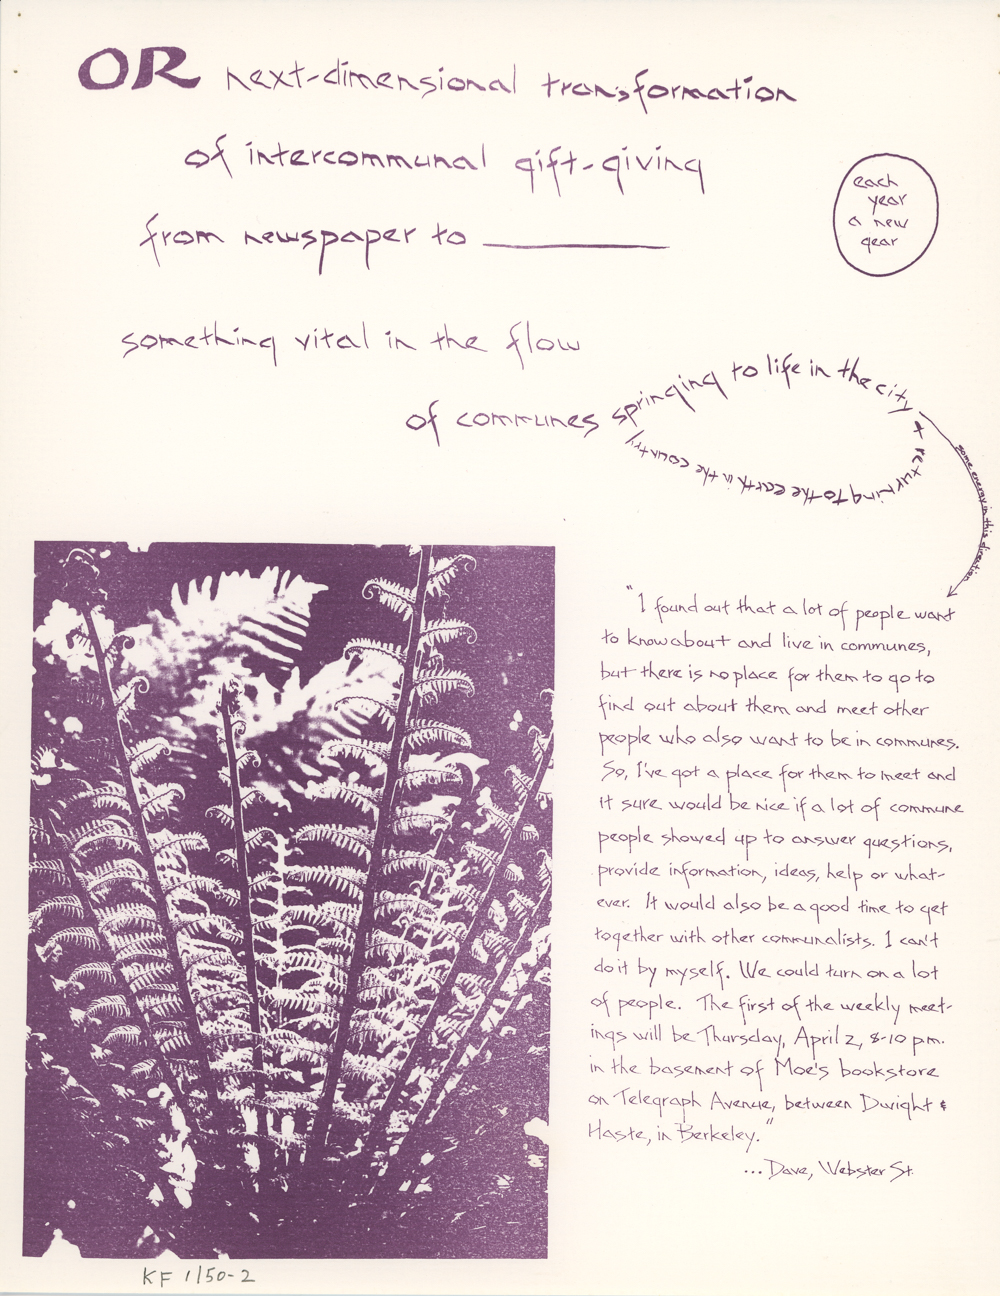 OR next-dimensional transformation
of intercommunal gift-giving
from newspaper to ________
each
year
a new
gear
something vital in the flow
of communes springing to life in the city
+ returning to the earth in the country
some energy in this direction
"I found out that a lot of people want
to know about and live in communes,
but there is no place for them to go to
find out about them and meet other
people who also want to be in communes.
So, I've got a place for them to meet and
it sure would be nice if a lot of commune
people showed up to answer questions,
provide information, ideas, help or what-
ever. It would also be a good time to get
together with other communalists. I can't
do it by myself. We could turn on a lot
of people. The first of the weekly meet-
ings will be Thursday, April 2, 8-10 pm.
in the basement of Moe's bookstore
on Telegraph Avenue, between Dwight &
Haste, in Berkeley."
...Dave, Webster St.
KF 1/50-2